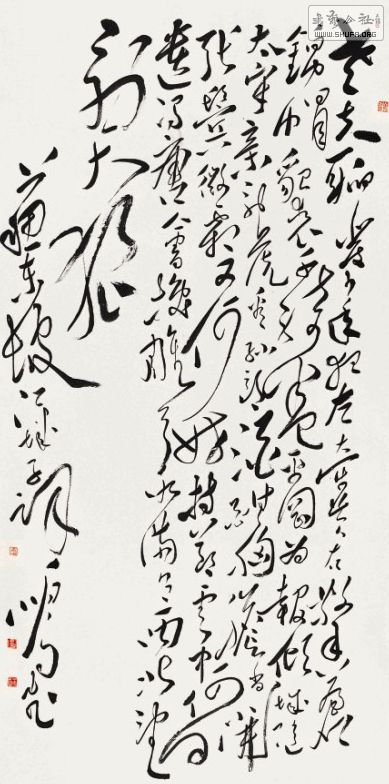 老夫聊發少年狂左牽黃右擎蒼
錦帽貂裘千騎卷平岡為報傾城隨
太守親射虎看孫郎酒酣胸膽尚開
張鬢微霜又何妨持節雲中何日
遣馮唐會挽雕弓如滿月西北望
射天狼
蘇東坡江城子詞
公社